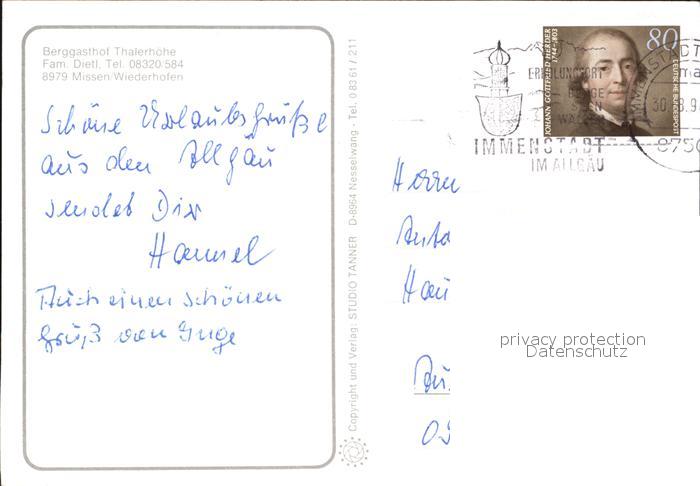 Berggasthof Thalerhöhe
Fam. Dietl, Tel. 08320/584
8979 Missen/Wiederhofen
Schöne Urlaubsgrüße
aus dem Allgäu
sendet Dir
Hannel
Auch einen schönen
Gruß von Inge
Copyright und Verlag: STUDIO TANNER D-8964 Nesselwang - Tel. 0 83 61 / 211
JOHANN GOTTFRIED HERDER
1744-1803
80
DEUTSCHE BUNDESPOST
ERHOLUNGSORT
IMMENSTADT
IM ALLGÄU
IMMENSTADT
30
8.9
875
Herrn
Anto
Hau
privacy protection
Datenschutz